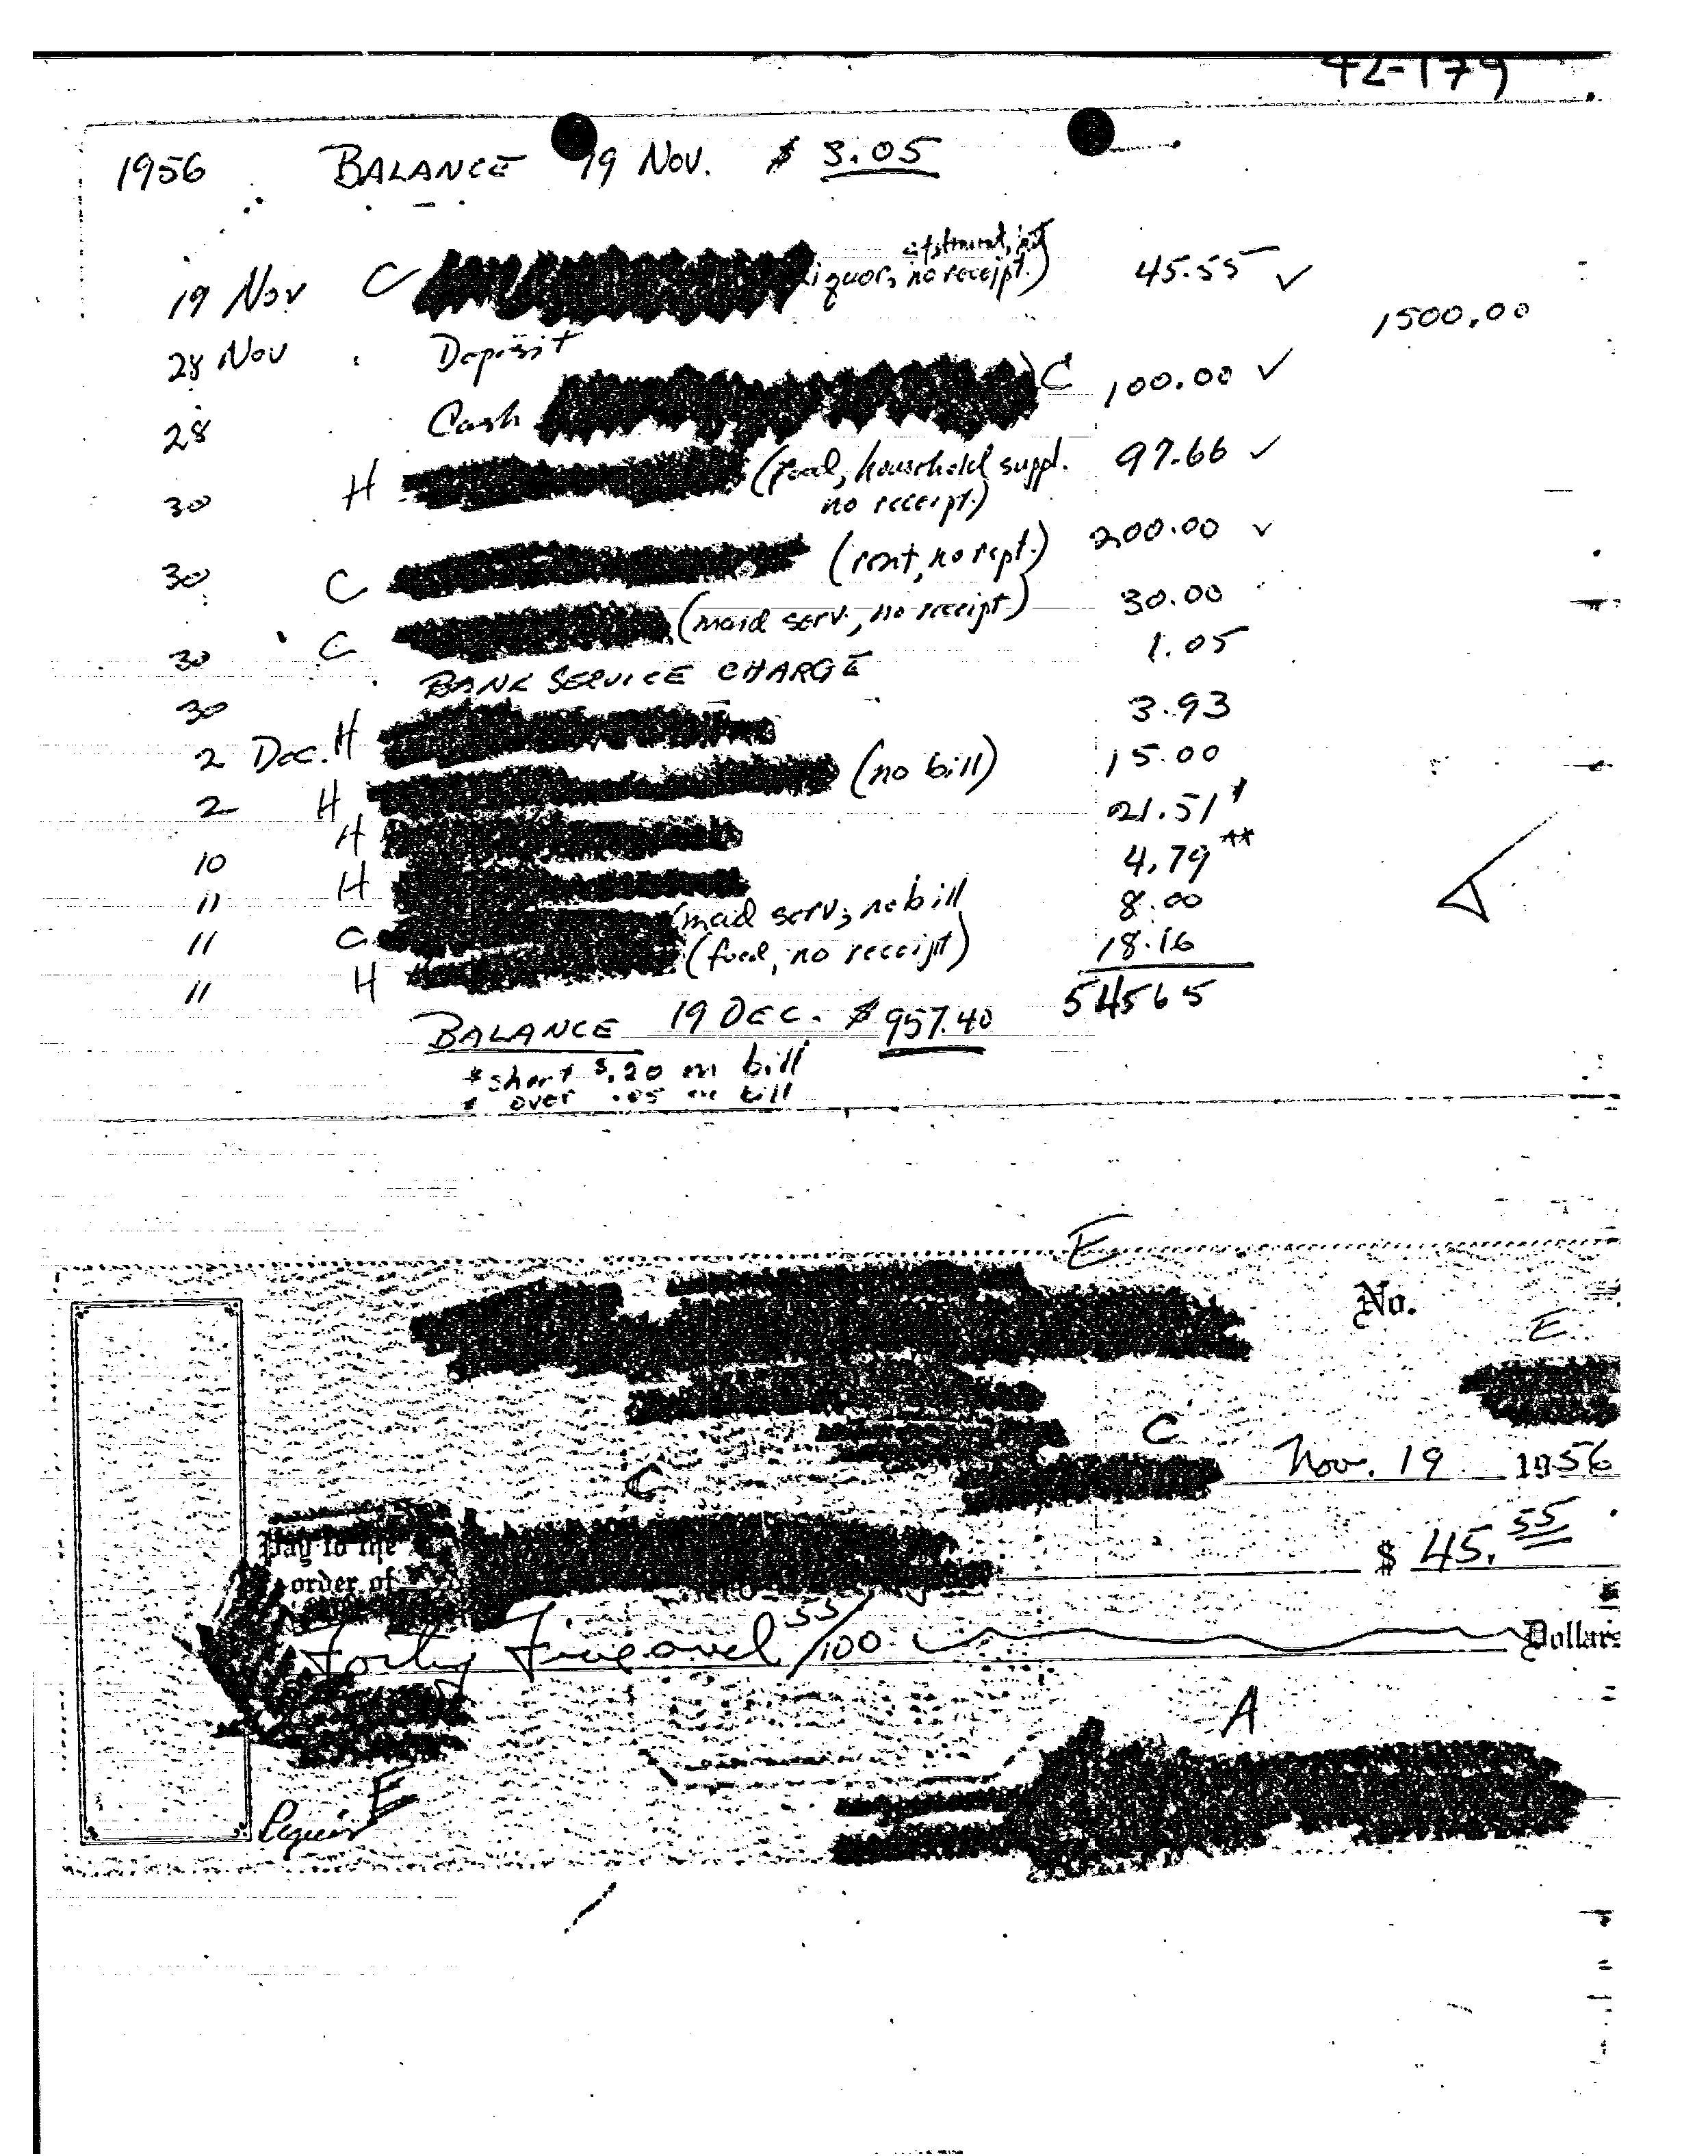 42-179
1956 BALANCE 19 NOV. $ 3.05
19 Nov C liquor, no receipt.) 45.55 ✓
28 Nov Deposit 1500.00
28 Cash C 100.00 ✓
30 H (food, household suppl. 97.66 ✓
no receipt.)
30 C (rent, no rcpt.) 200.00 ✓
30 C (maid serv., no receipt.) 30.00
30 BANK SERVICE CHARGE 1.05
2 Dec. H 3.93
2 H (no bill) 15.00
10 H 21.51*
11 H 4.79**
11 C (maid serv; no bill 8.00
11 H (food, no receipt) 18.16
54565
BALANCE 19 DEC. $957.40
* short $.20 on bill
* over .05 on bill
E
No.
E
C
Nov. 19 1956
C
Pay to the
order of $ 45.55
Forty Five and 55/100 Dollars
A
E